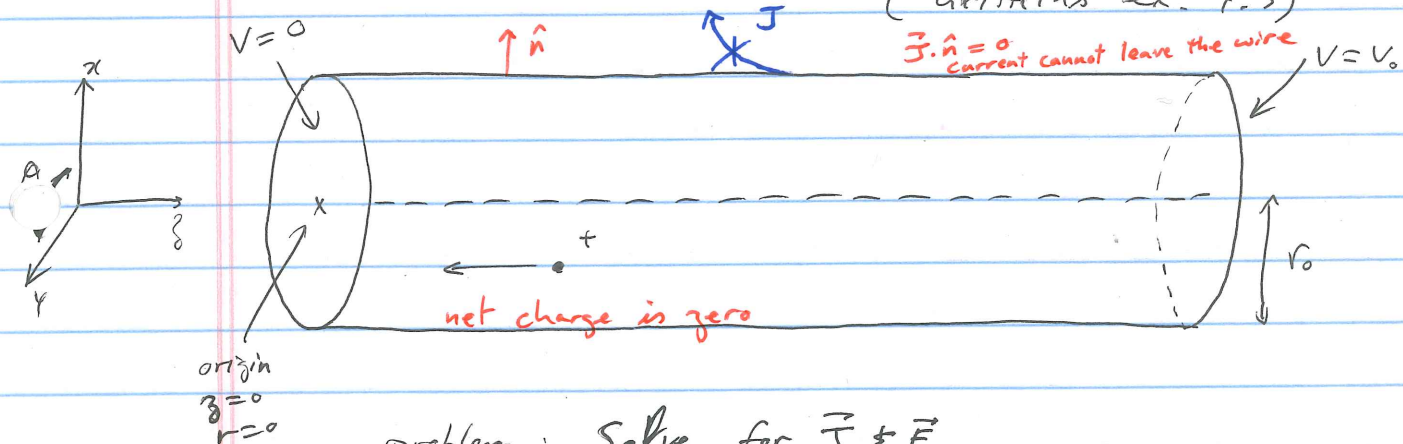 V = 0
n̂
J
J⃗.n̂ = 0
current cannot leave the wire
V = V₀
x
z
y
x
+
r₀
net charge is zero
origin
z=0
r=0
problem : Solve for J⃗ & E⃗